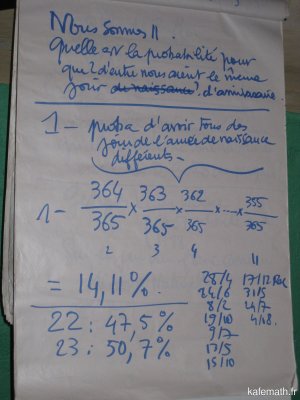 Nous sommes 11.
Quelle est la probabilité pour
que 2 d'entre nous aient le même
jour de naissance, d'anniversaire.
1 - proba d'avoir tous des
jours de l'année de naissance
différents -
1 - 364/365 × 363/365 × 362/365 × ... × 355/365
2 3 4 11
= 14,11%.
22 : 47,5%
23 : 50,7%
28/4 17/12
24/6 31/5
8/2 24/7
19/10 4/18
9/7
17/5
15/10
kafemath.fr